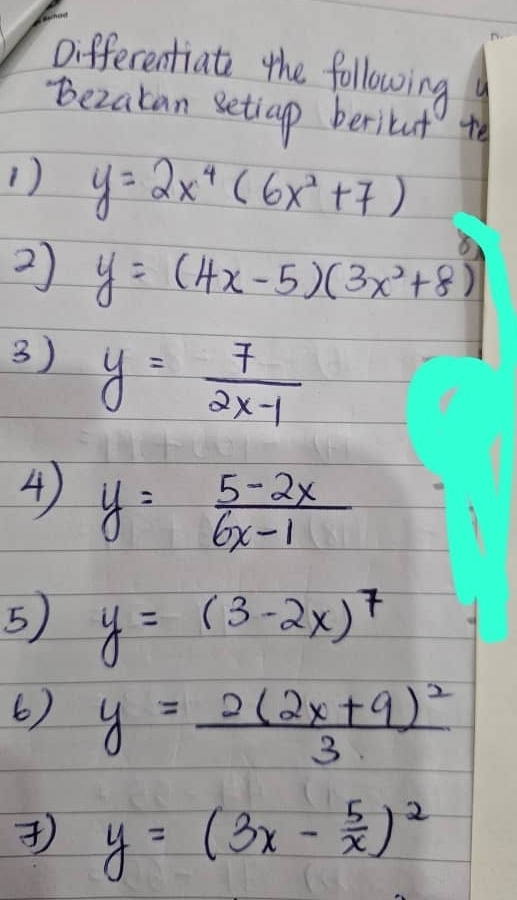 Differentiate the following
Bezakan setiap berikut te
1) y = 2x⁴ (6x² + 7)
2) y = (4x - 5)(3x² + 8)
3) y = 7 / 2x-1
4) y = 5-2x / 6x-1
5) y = (3-2x)⁷
6) y = 2(2x+9)² / 3
7) y = (3x - 5/x)²